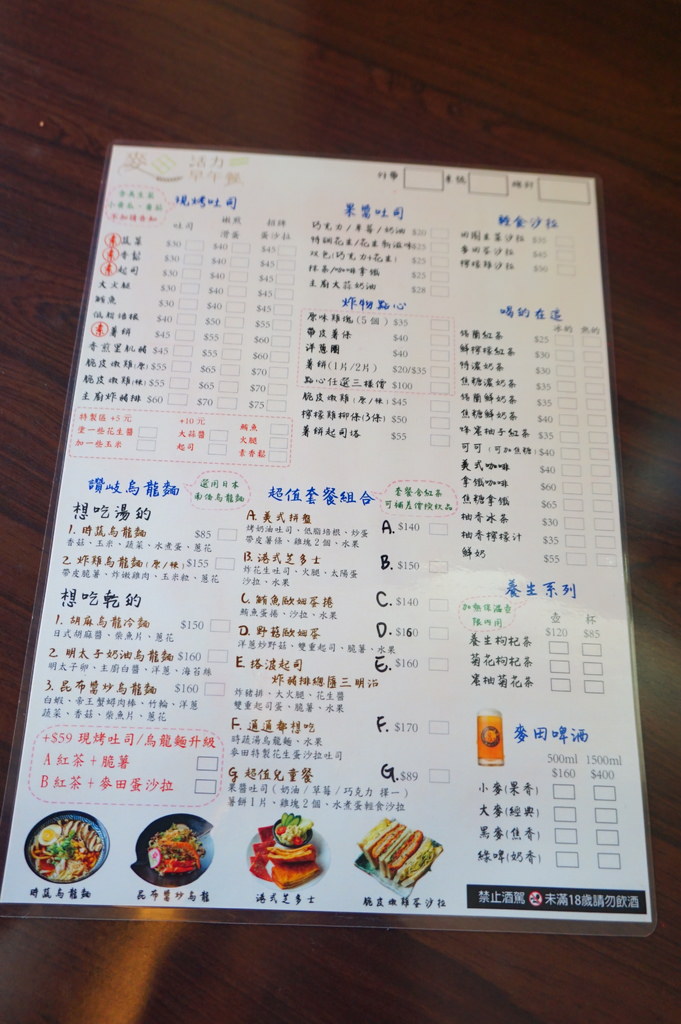 活力
早午餐
現烤吐司
吐司 嫩煎滑蛋 招牌蛋沙拉
素 蔬菜 $30 $40 $45
素 香鬆 $30 $40 $45
素 起司 $30 $40 $45
大火腿 $30 $40 $45
鮪魚 $30 $40 $45
低脂培根 $40 $50 $55
素 薯餅 $45 $55 $60
香煎里肌豬 $45 $55 $60
脆皮嫩雞(原) $55 $65 $70
脆皮嫩雞(辣) $55 $65 $70
主廚炸豬排 $60 $70 $75
特製區 +5元
塗一些花生醬
加一些玉米
+10元
大蒜醬
起司
鮪魚
火腿
素香鬆
果醬吐司
巧克力/草莓/奶油 $20
特調花生/花生刷滋味 $25
双色(巧克力+花生) $25
抹茶/咖啡拿鐵 $25
主廚大蒜奶油 $28
炸物點心
原味雞塊(5個) $35
帶皮薯條 $40
洋蔥圈 $40
薯餅(1片/2片) $20/$35
點心任選三樣價 $100
脆皮嫩雞(原/辣) $45
檸檬雞柳條(3條) $50
薯餅起司塔 $55
輕食沙拉
田園生菜沙拉
麥田蛋沙拉 $45
檸檬雞沙拉
喝的在這
冰的 熱的
錫蘭紅茶 $25
鮮檸檬紅茶 $30
特濃奶茶 $30
焦糖濃奶茶 $35
錫蘭鮮奶茶 $35
焦糖鮮奶茶 $40
蜂蜜柚子紅茶 $35
可可(可加焦糖) $40
美式咖啡 $40
拿鐵咖啡 $60
焦糖拿鐵 $65
柚香冰茶 $35
柚香檸檬汁 $35
鮮奶 $55
讚岐烏龍麵
選用日本
南僑烏龍麵
想吃湯的
1. 時蔬烏龍麵 $85
香菇、玉米、蔬菜、水煮蛋、蔥花
2. 炸雞烏龍麵(原/辣) $155
帶皮脆薯、炸嫩雞肉、玉米粒、蔥花
想吃乾的
1. 胡麻烏龍冷麵 $150
日式胡麻醬、柴魚片、蔥花
2. 明太子奶油烏龍麵 $160
明太子卵、主廚白醬、洋蔥、海苔絲
3. 昆布醬炒烏龍麵 $160
白蝦、帝王蟹蟳肉棒、竹輪、洋蔥
蔬菜、香菇、柴魚片、蔥花
+$59 現烤吐司/烏龍麵升級
A 紅茶+脆薯
B 紅茶+麥田蛋沙拉
超值套餐組合
套餐含紅茶
可補差價換飲品
A. 美式拼盤 A. $140
烤奶油吐司、低脂培根、炒蛋
帶皮薯條、雞塊2個、水果
B. 港式芝多士 B. $150
炸花生吐司、火腿、太陽蛋
沙拉、水果
C. 鮪魚歐姆蛋捲 C. $140
鮪魚蛋捲、沙拉、水果
D. 野菇歐姆蛋 D. $160
洋蔥炒野菇、雙重起司、脆薯、水果
E. 塔波起司 E. $160
炸豬排總匯三明治
炸豬排、大火腿、花生醬
雙重起司蛋、脆薯、水果
F. 通通都想吃 F. $170
時蔬湯烏龍麵、水果
麥田特製花生蛋沙拉吐司
G. 超值兒童餐 G. $89
果醬吐司(奶油/草莓/巧克力 擇一)
薯餅1片、雞塊2個、水煮蛋輕食沙拉
養生系列
加熱保溫壺
限內用
壺 杯
$120 $85
養生枸杞茶
菊花枸杞茶
蜜柚菊花茶
麥田啤酒
500ml 1500ml
$160 $400
小麥(果香)
大麥(經典)
黑麥(焦香)
綠啤(奶香)
時蔬烏龍麵
昆布醬炒烏龍
港式芝多士
脆皮嫩雞蛋沙拉
禁止酒駕 未滿18歲請勿飲酒